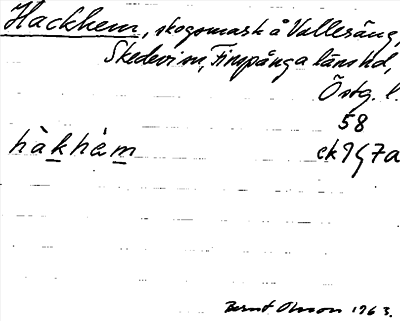 Hackhem, skogsmark å Vallesäng,
Skedevi sn, Finspånga länshd,
Östg. l.
58
hàkhèm ek 9G7a
Bernt Olsson 1963.